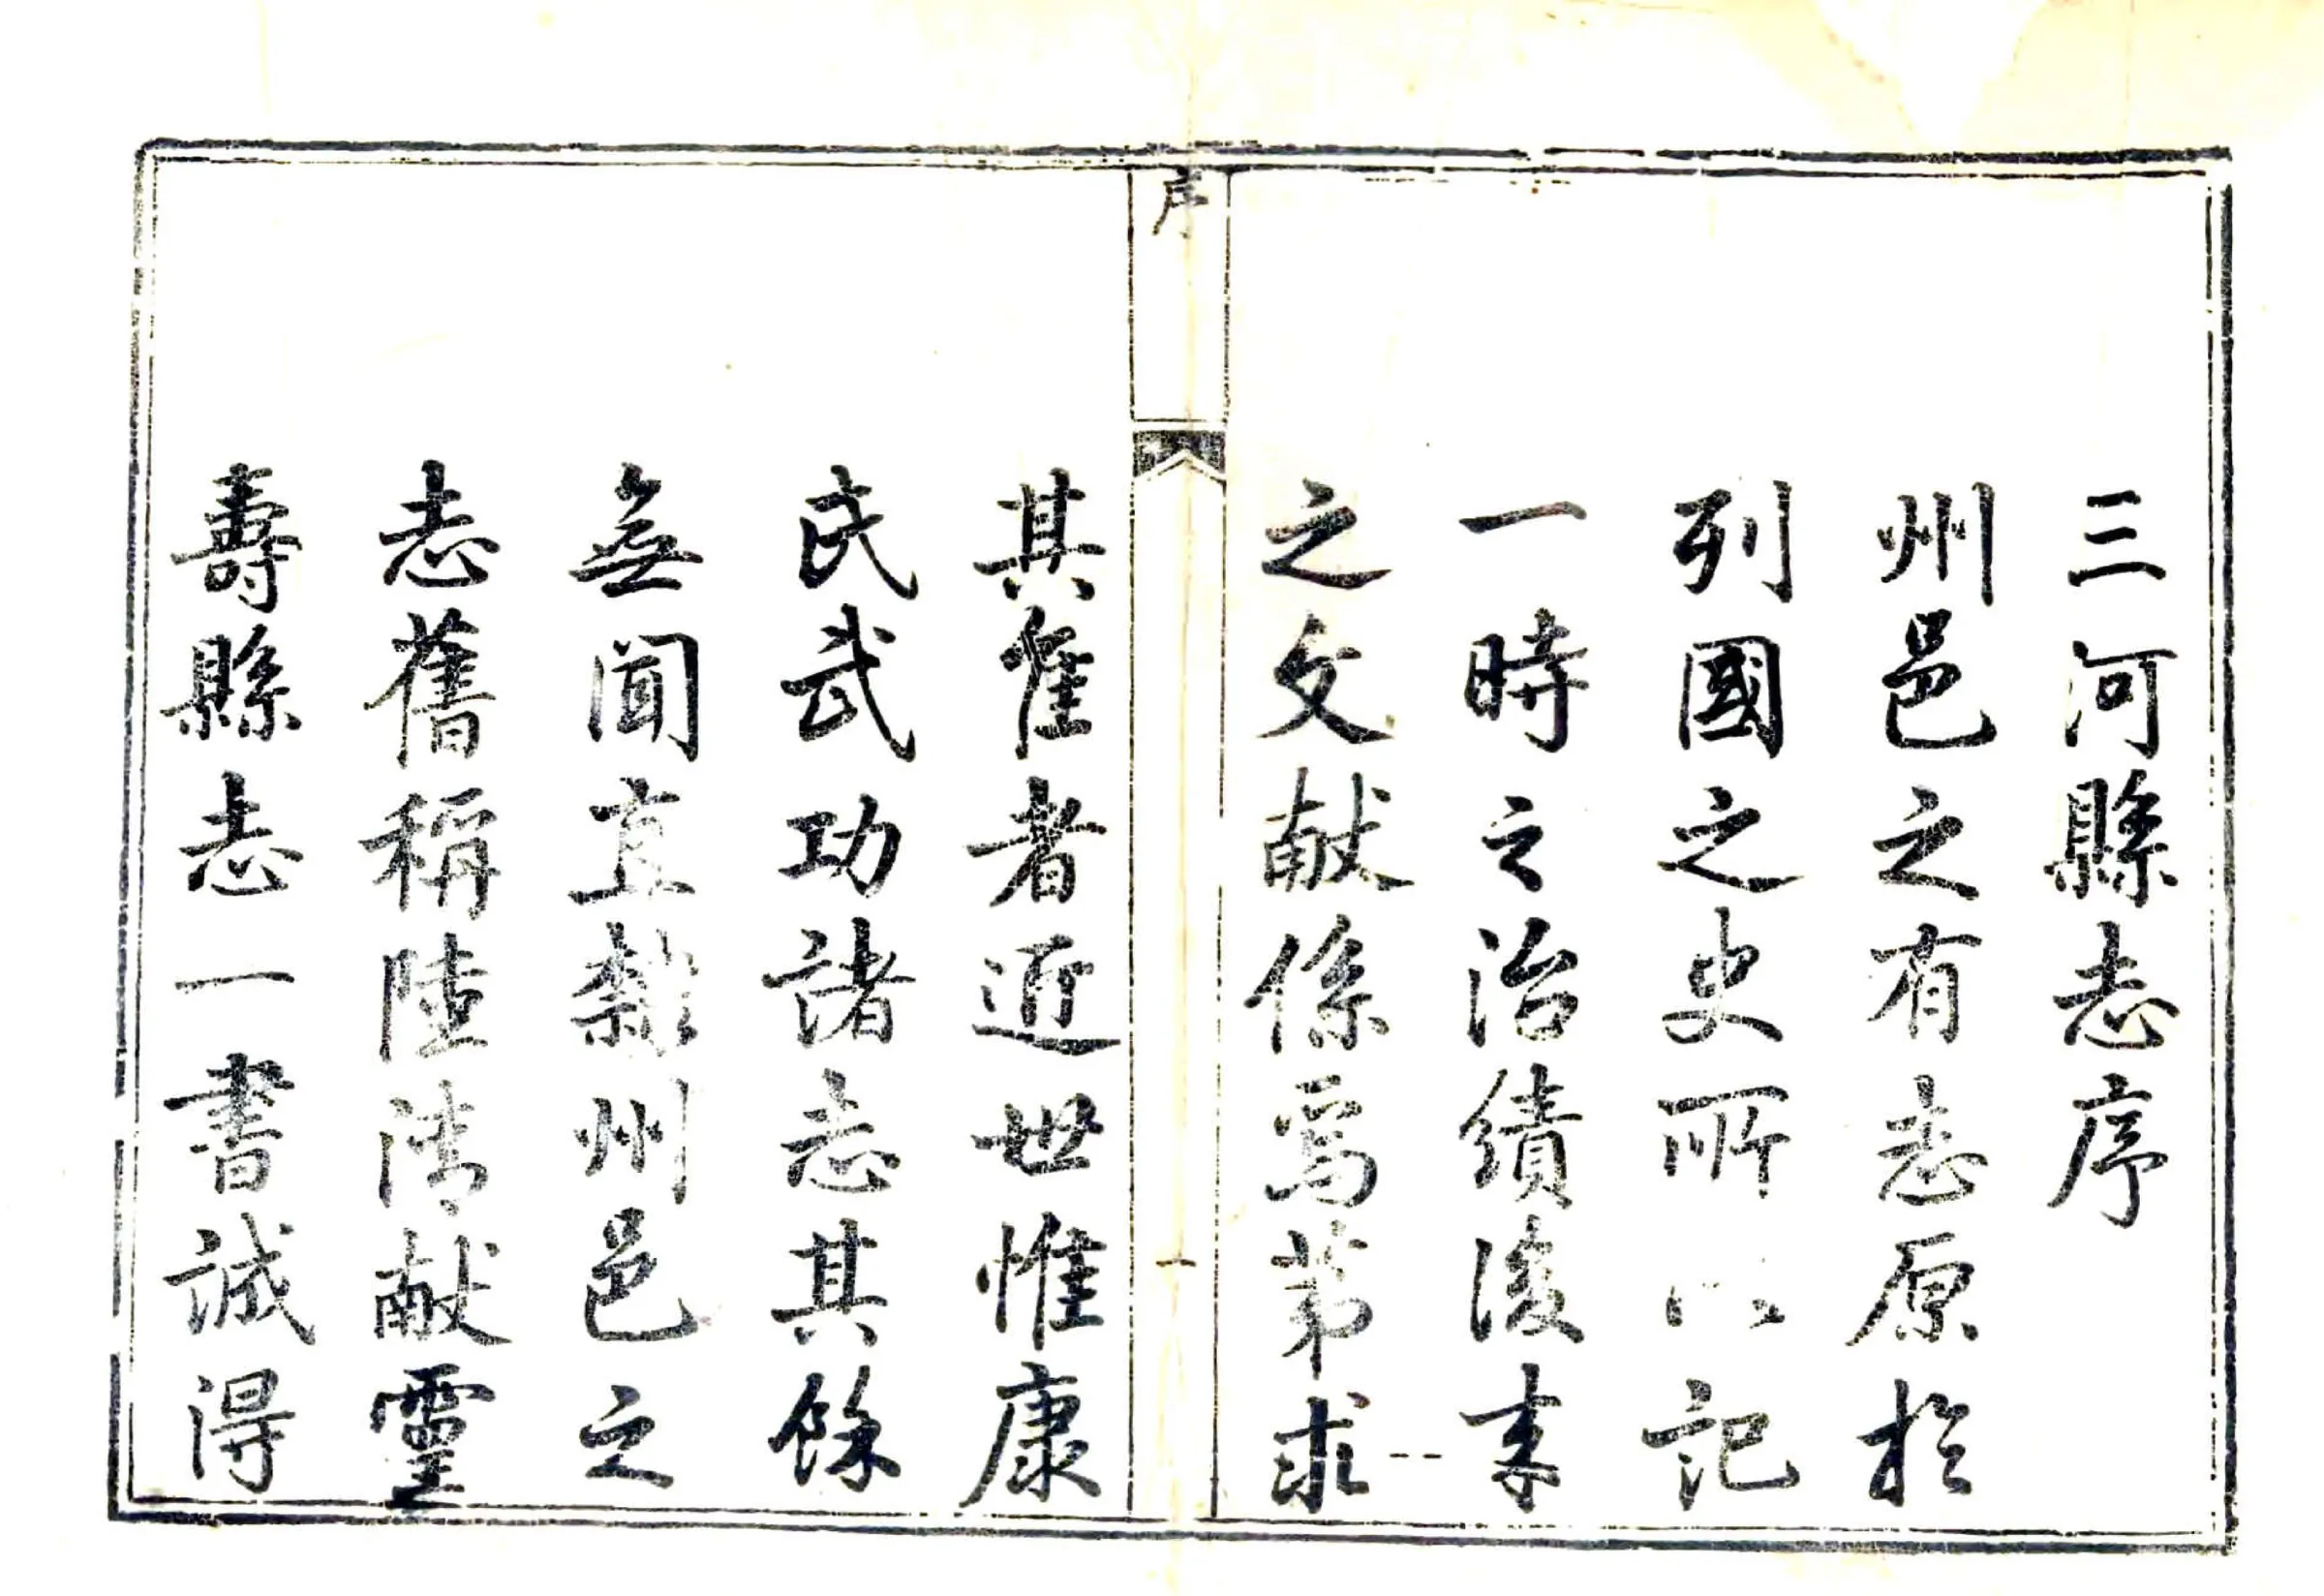 三河縣志序
州邑之有志原於
列國之史所以記
一時之治績後來
之文献係焉苐求
序
一
其隹者近世惟康
氏武功諸志其餘
無聞直隷州邑之
志舊稱陸清献靈
壽縣志一書誠得